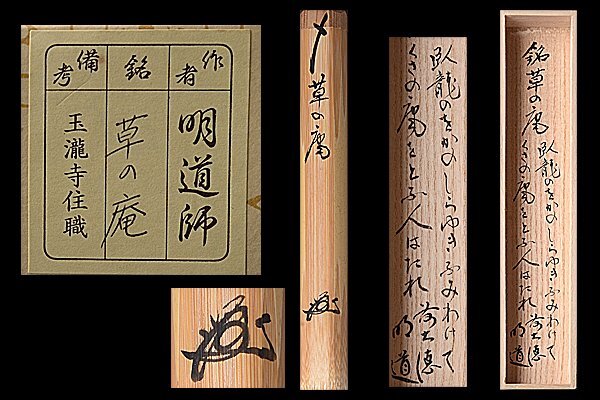 作者
明道師
銘
草の庵
備考
玉瀧寺住職
草の庵
臥龍のをかのしらゆきふみわけて
くさの庵をとふ人はたれ
明道
銘草の庵
臥龍のをかのしらゆきふみわけて
くさの庵をとふ人はたれ
明道